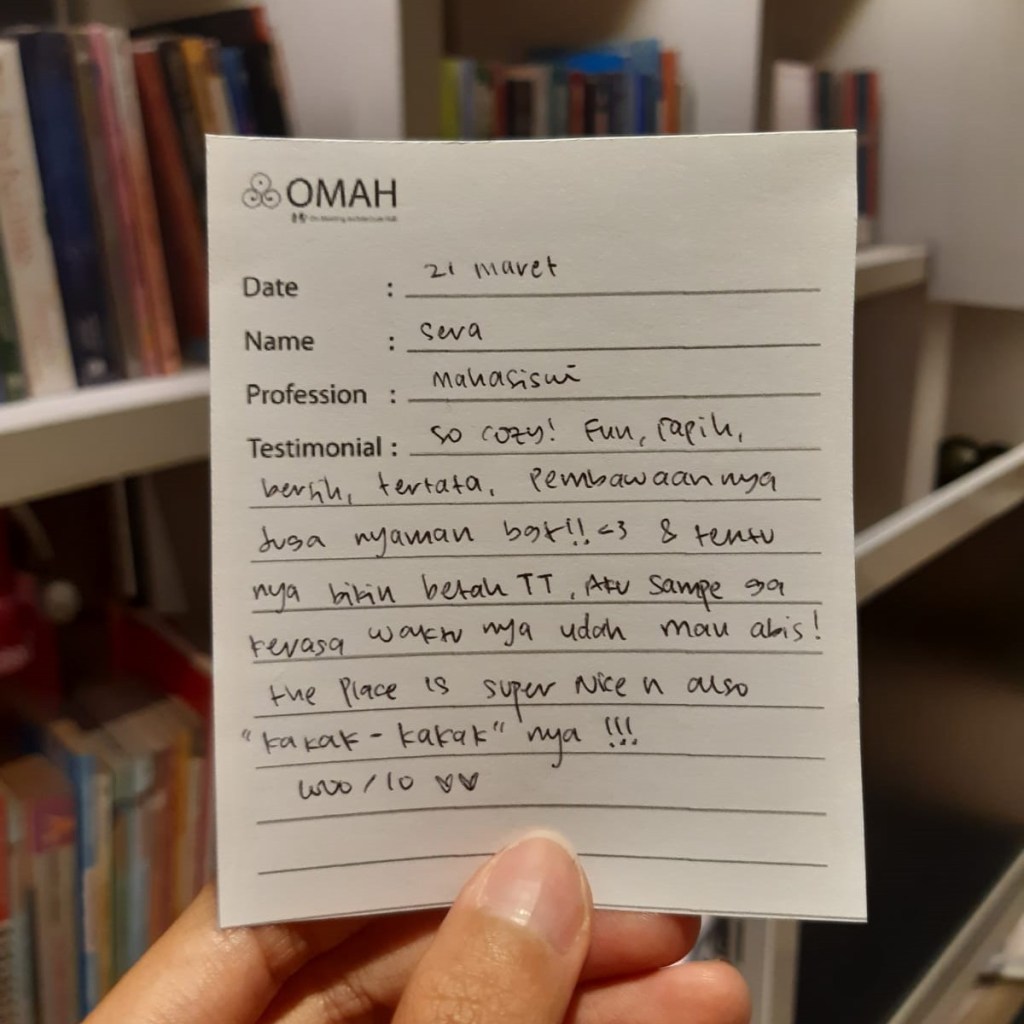 OMAH
Date : 21 Maret
Name : Sera
Profession : Mahasiswi
Testimonial : So cozy! Fun, rapih,
bersih, tertata, Pembawaannya
Juga nyaman bgt!! <3 & tentu
nya bikin betah TT, Aku sampe ga
kerasa waktu nya udah mau abis!
the place is super nice n also
"kakak - kakak" nya !!!
100 / 10 ♡♡